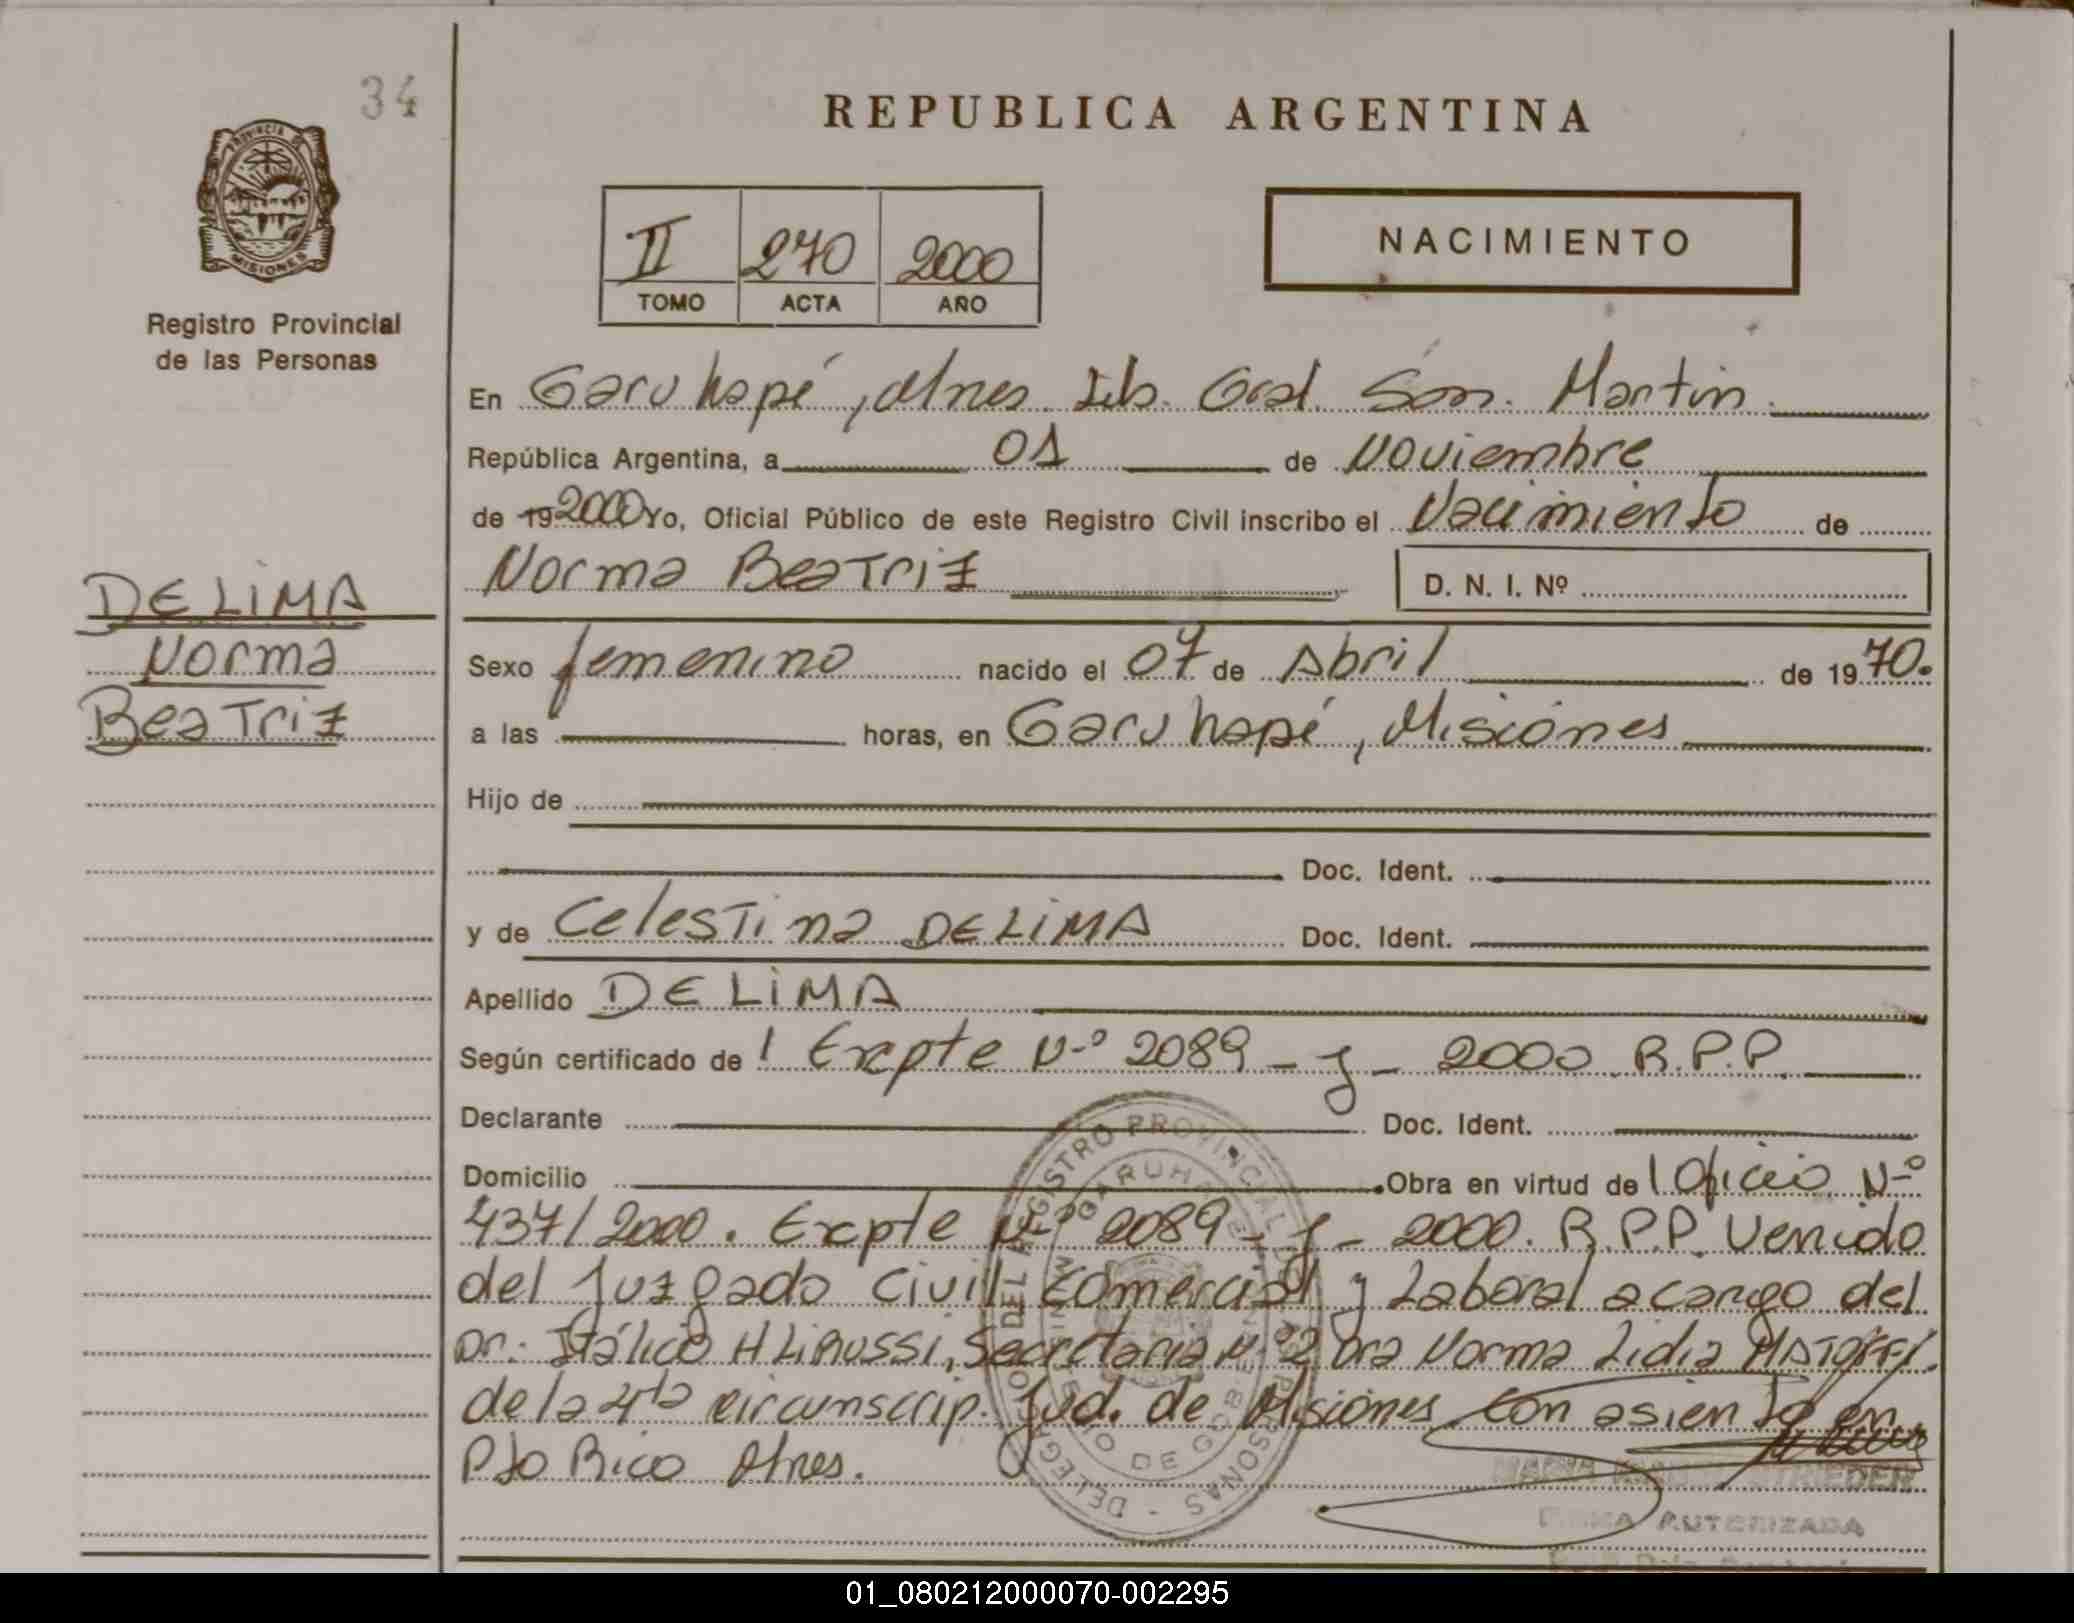 34
REPUBLICA ARGENTINA
PROVINCIA DE
MISIONES
Registro Provincial
de las Personas
II 270 2000
TOMO ACTA AÑO
NACIMIENTO
En Garuhapé, Mnes. Lib. Gral. San. Martin.
República Argentina, a 01 de Noviembre
de 19 2000 Yo, Oficial Público de este Registro Civil inscribo el Nacimiento de
Norma Beatriz D. N. I. Nº
DE LIMA
Norma
Beatriz
Sexo femenino nacido el 07 de Abril de 1970.
a las horas, en Garuhapé, Misiones
Hijo de
Doc. Ident.
y de Celestina DE LIMA Doc. Ident.
Apellido DE LIMA
Según certificado de Expte Nº 2089 - J - 2000. R.P.P.
Declarante Doc. Ident.
Domicilio Obra en virtud de Oficio Nº
437/2000. Expte Nº 2089 - J - 2000. R.P.P. Venido
del Juzgado Civil, Comercial y Laboral a cargo del
Dr. Itálico H LIRUSSI, Secretaria Nº 2 Dra Norma Lidia
de la 4ta circunscrip. Jud. de Misiones con asiento en
Pto Rico Mnes.
STRIEDER
FIRMA AUTORIZADA
01_080212000070-002295